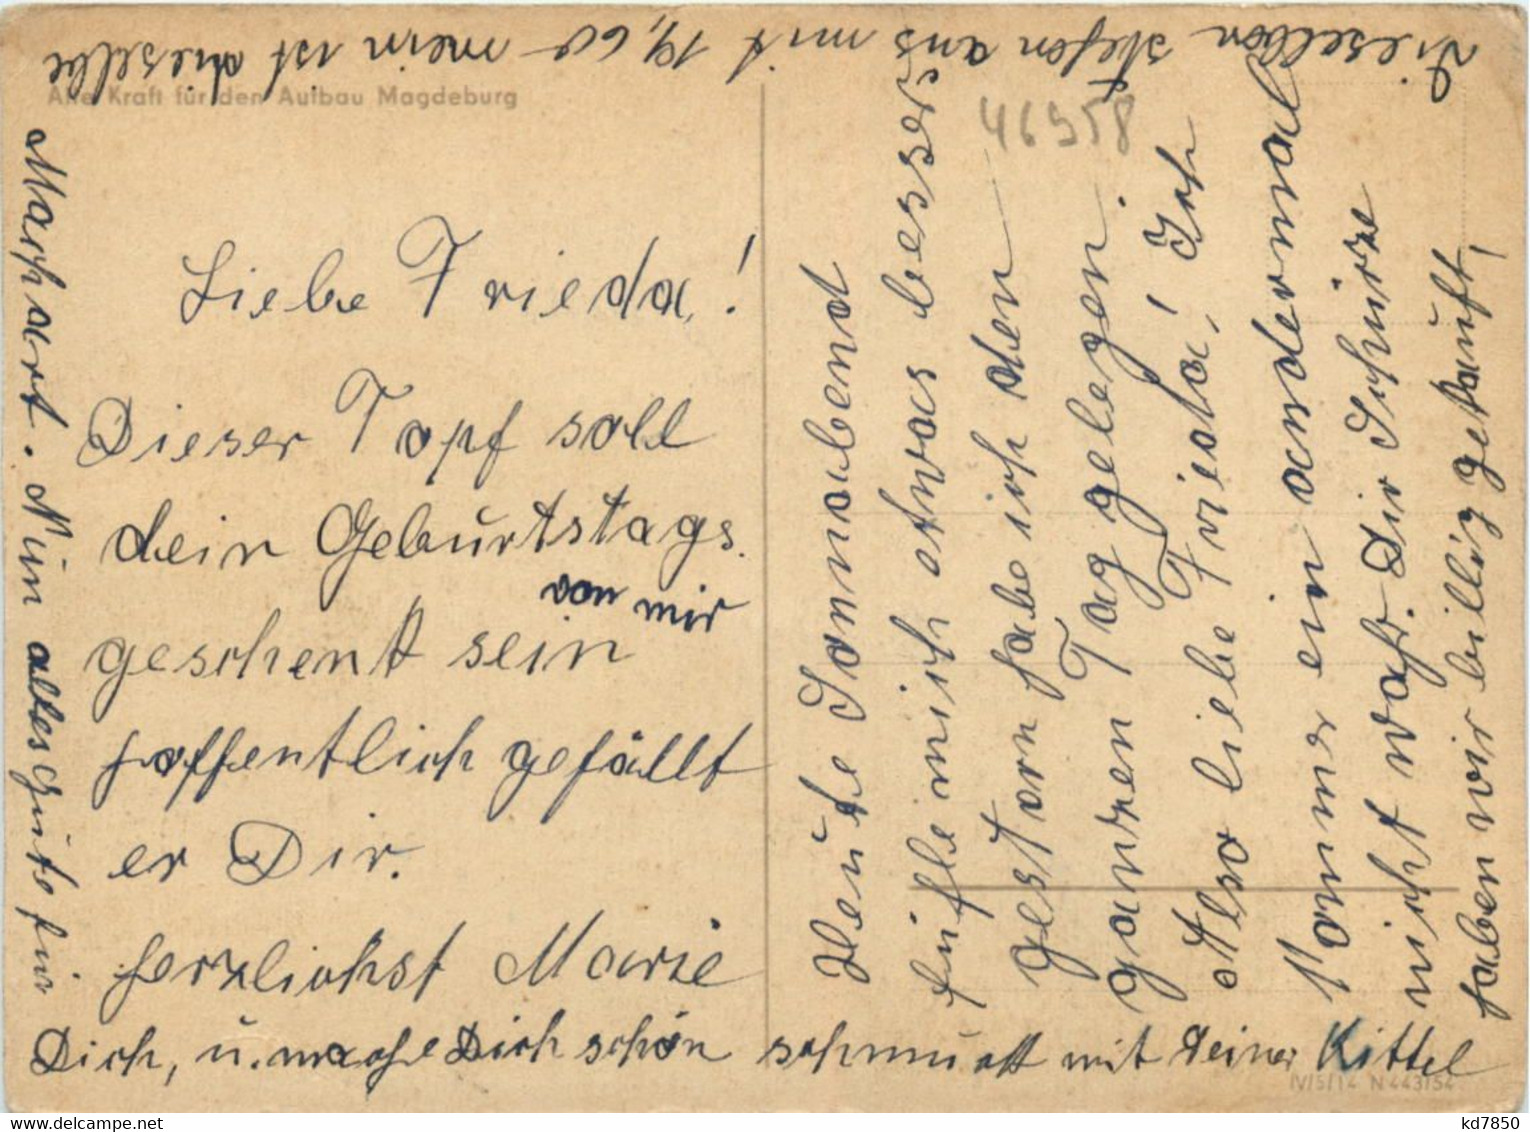 Alle Kraft für den Aufbau Magdeburg
46958
Liebe Frieda!
Dieser Topf soll
dein Geburtstags.
von mir
geschenk sein
hoffentlich gefällt
er Dir.
herzlichst Marie
Heute Sonnabend
fühle mich etwas besser
gestern habe ich den
ganzen Tag gelegen.
Also liebe Frieda! Ich
komme ein andermal
nicht wahr. Die Schürze
haben wir billig gekauft,
Dieselben stehen aus mit 19,60 mein ist dieselbe
Machart. Nun alles gute für
Dich, u. mache Dich schön schmuck mit deiner Kittel
IV/5/14 N 443/54
kd7850